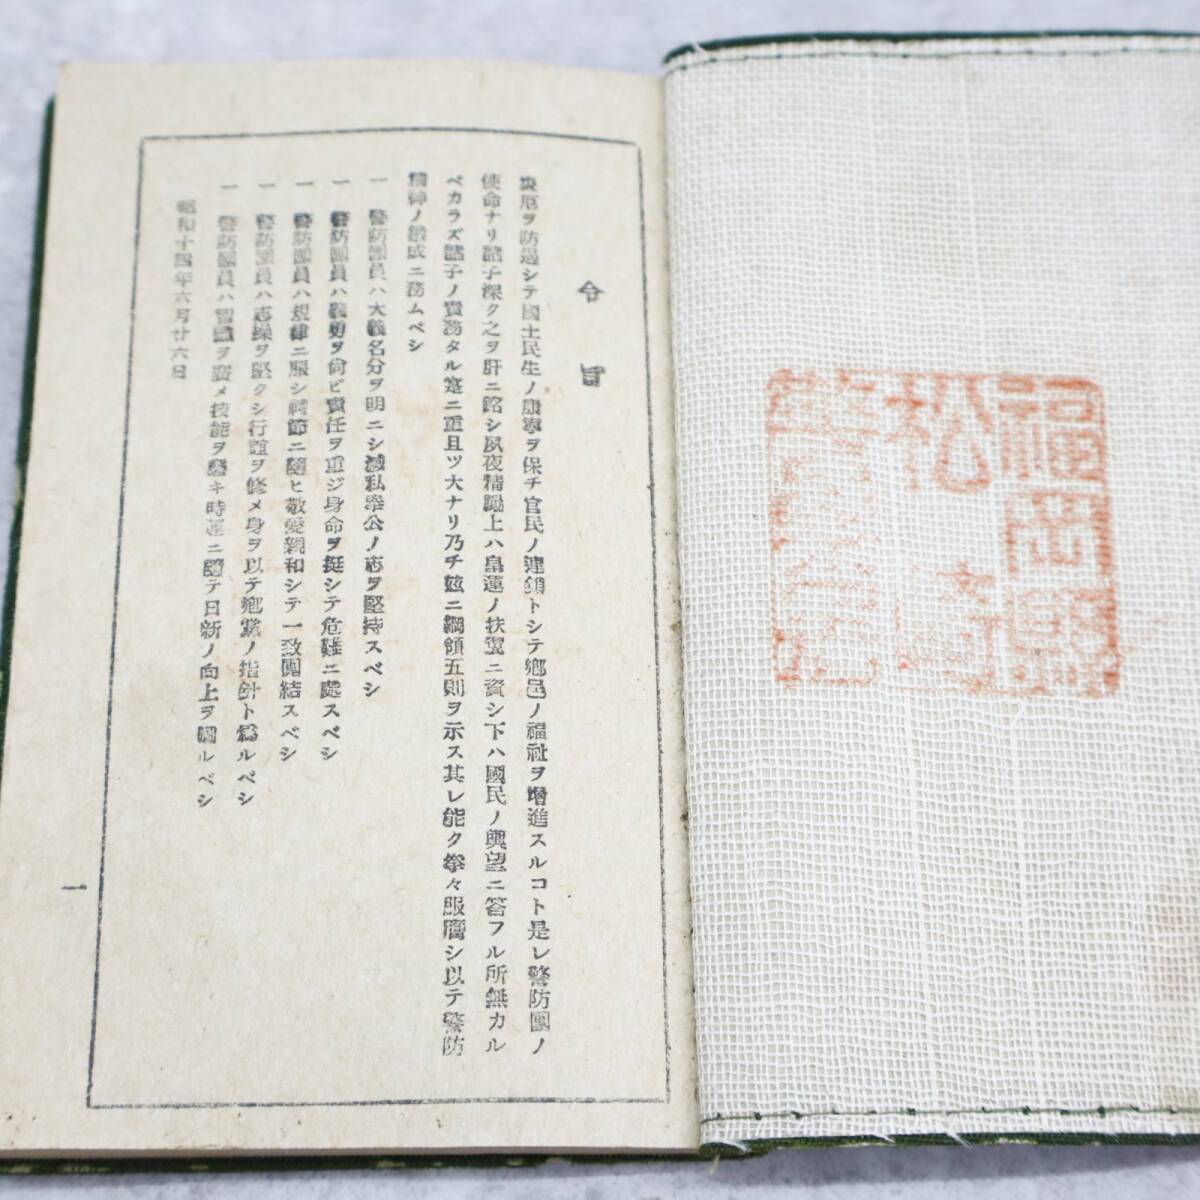 福岡縣
松
令旨
災厄ヲ防遏シテ國土民生ノ康寧ヲ保チ官民ノ連鎖トシテ鄕邑ノ福祉ヲ增進スルコト是レ警防團ノ
使命ナリ諸子深ク之ヲ肝ニ銘シ夙夜精勵上ハ皇運ノ扶翼ニ資シ下ハ國民ノ輿望ニ答フル所無カル
ベカラズ諸子ノ責務タル寔ニ重且ツ大ナリ乃チ玆ニ綱領五則ヲ示ス其レ能ク拳々服膺シ以テ警防
精神ノ鍛成ニ務ムベシ
一 警防團員ハ大義名分ヲ明ニシ滅私奉公ノ志ヲ堅持スベシ
一 警防團員ハ義勇ヲ尙ビ責任ヲ重ジ身命ヲ挺シテ危難ニ處スベシ
一 警防團員ハ規律ニ服シ禮節ニ隨ヒ敬愛親和シテ一致團結スベシ
一 警防團員ハ志操ヲ堅クシ行誼ヲ修メ身ヲ以テ鄕黨ノ指針ト爲ルベシ
一 警防團員ハ智識ヲ廣メ技能ヲ磨キ時運ニ隨テ日新ノ向上ヲ圖ルベシ
昭和十四年六月廿六日
一